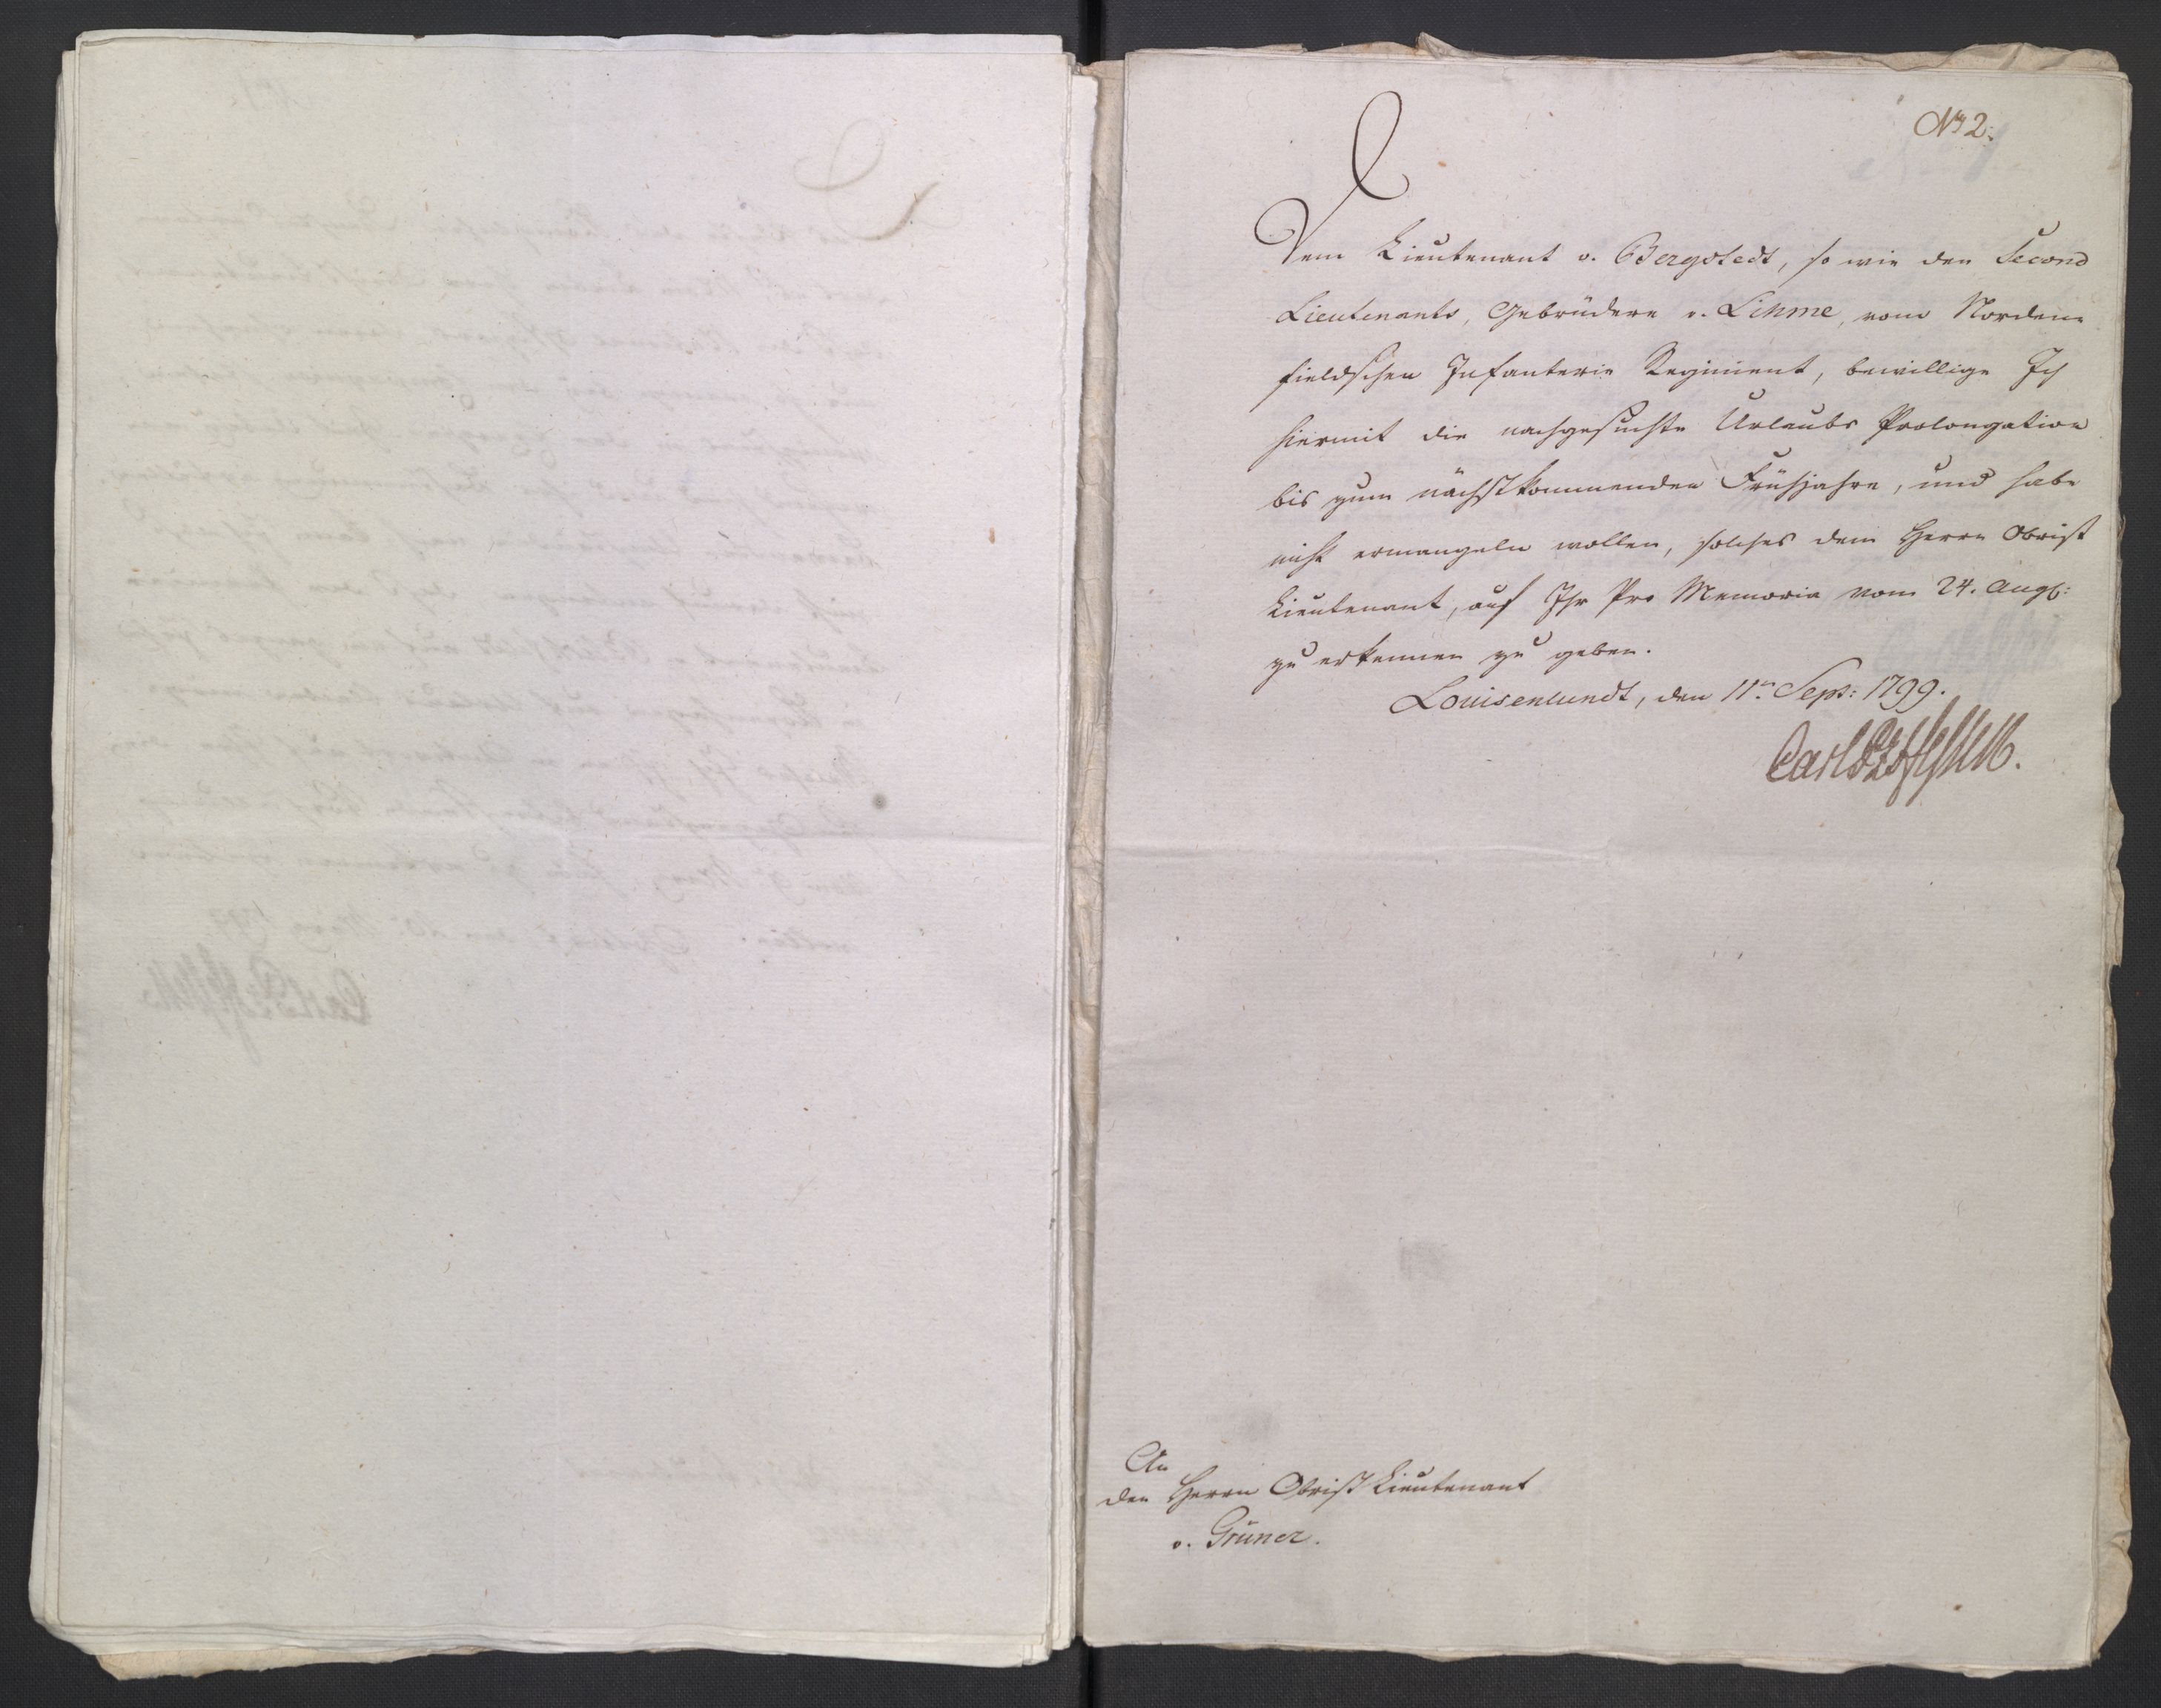 No 2.
Dem Lieutenant v. Bergstedt, so wie den Second
Lieutenants, Gebrüdere v. Lihme, vom Norden-
fieldschen Infanterie Regiment, bewillige Ich
hiermit die nachgesuchte Urlaubs Prolongation
bis zum nächstkommenden Frühjahre, und habe
nicht ermangeln wollen, solches dem Herrn Obrist
Lieutenant, auf Ihr Pro Memoria vom 24. Augt:
zu erkennen zu geben.
Louisenlundt, den 11n. Sept: 1799.
Carl PzHessen.
An
den Herrn Obrist Lieutenant
v. Grüner.